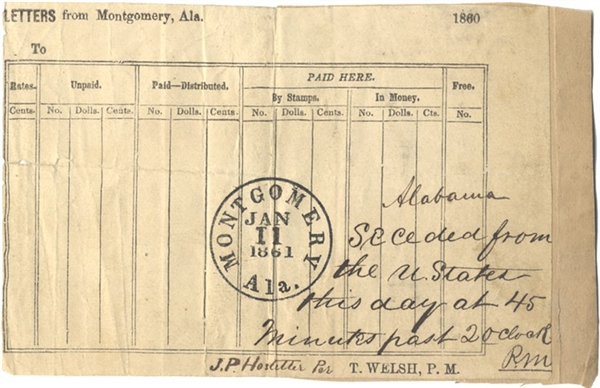 LETTERS from Montgomery, Ala. 1860
To
Rates. Unpaid. Paid—Distributed. PAID HERE. Free.
By Stamps. In Money.
Cents. No. Dolls. Cents. No. Dolls. Cents. No. Dolls. Cents. No. Dolls. Cts. No.
MONTGOMERY
JAN
11
1861
Ala.
Alabama
Seceded from
the U. States
this day at 45
Minutes past 2 oclock
P.M
J.P Hostetter Per T. WELSH, P. M.